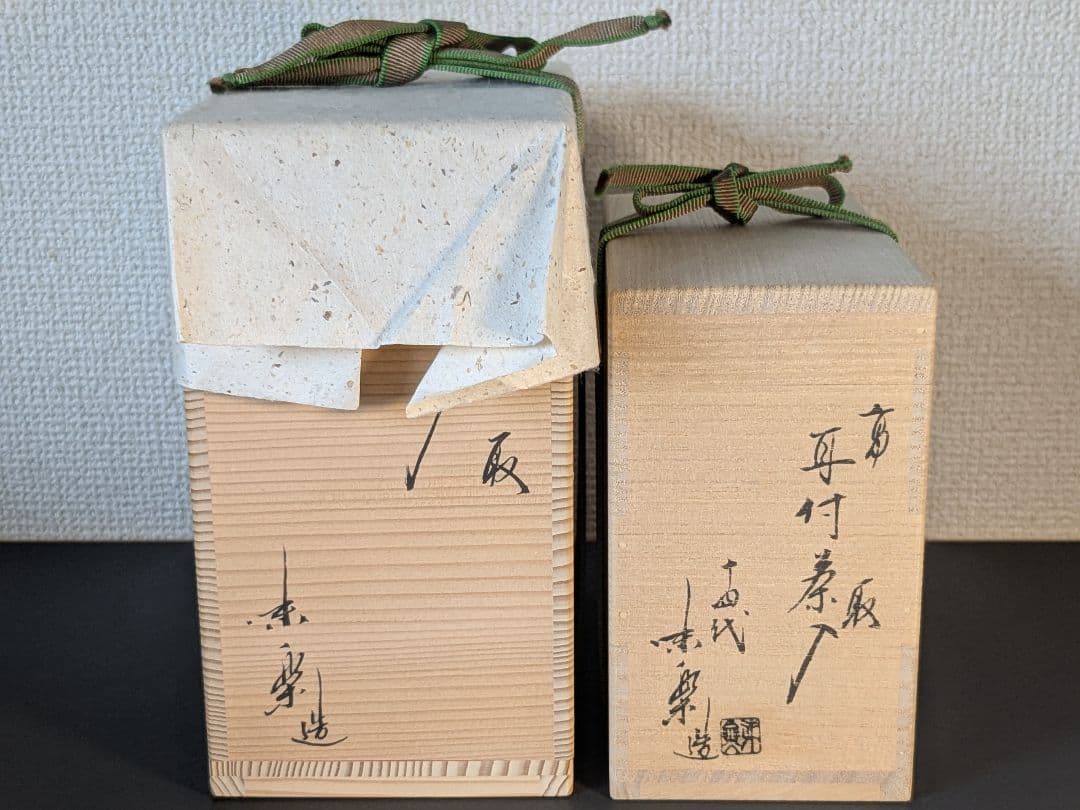 取
味楽造
高取
耳付茶入
十四代
味楽造